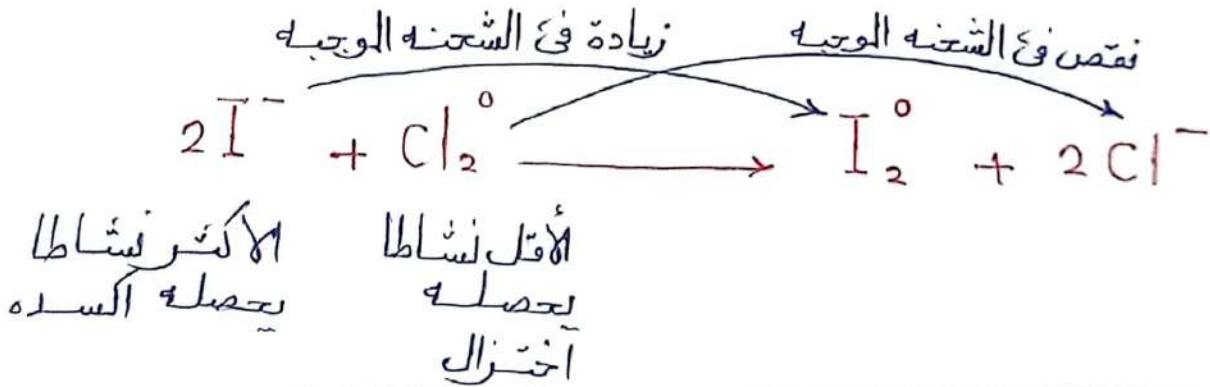 زيادة في الشحنه الموجبه
نقص في الشحنه الموجبه
2I⁻ + Cl₂⁰ ⟶ I₂⁰ + 2Cl⁻
الأكثر نشاطا
يحصله اكسده
الأقل نشاطا
يحصله
اختزال